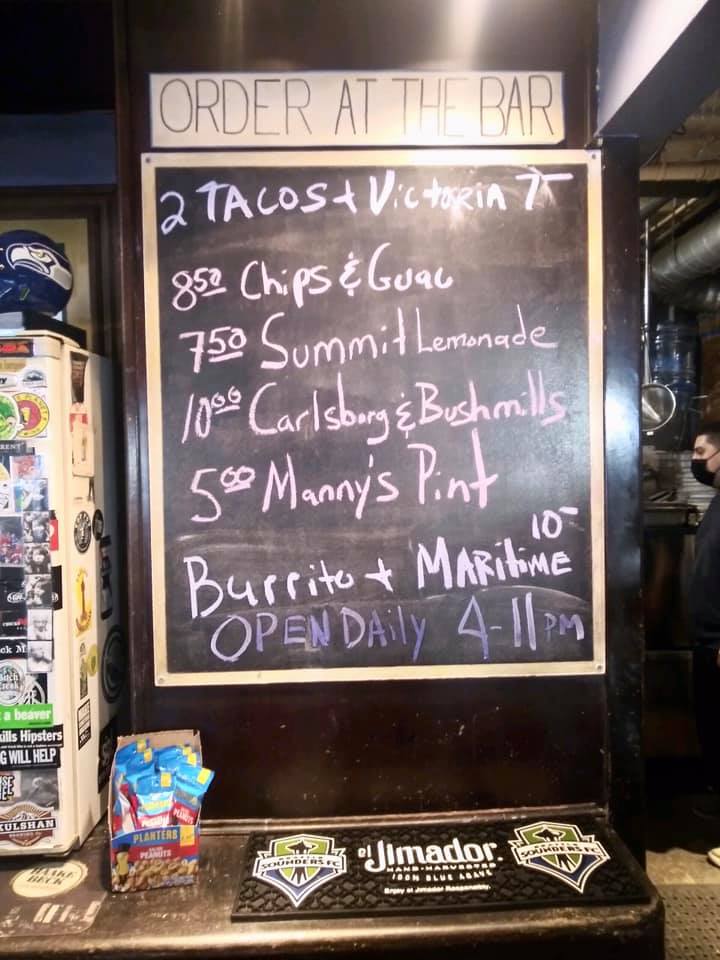 ORDER AT THE BAR
2 TACOS + VICTORIA 7-
8.50 Chips & Guac
7.50 Summit Lemonade
10.00 Carlsborg & Bushmills
5.00 Manny's Pint
10-
Burrito + MARITIME
OPEN DAILY 4-11 PM
a beaver
kills Hipsters
G WILL HELP
KULSHAN
HAAKE
BECK
PLANTERS
PEANUTS
SOUNDERS FC
el Jimador.
HAND-HARVESTED
100% BLUE AGAVE
Enjoy el Jimador Responsibly.
SOUNDERS FC